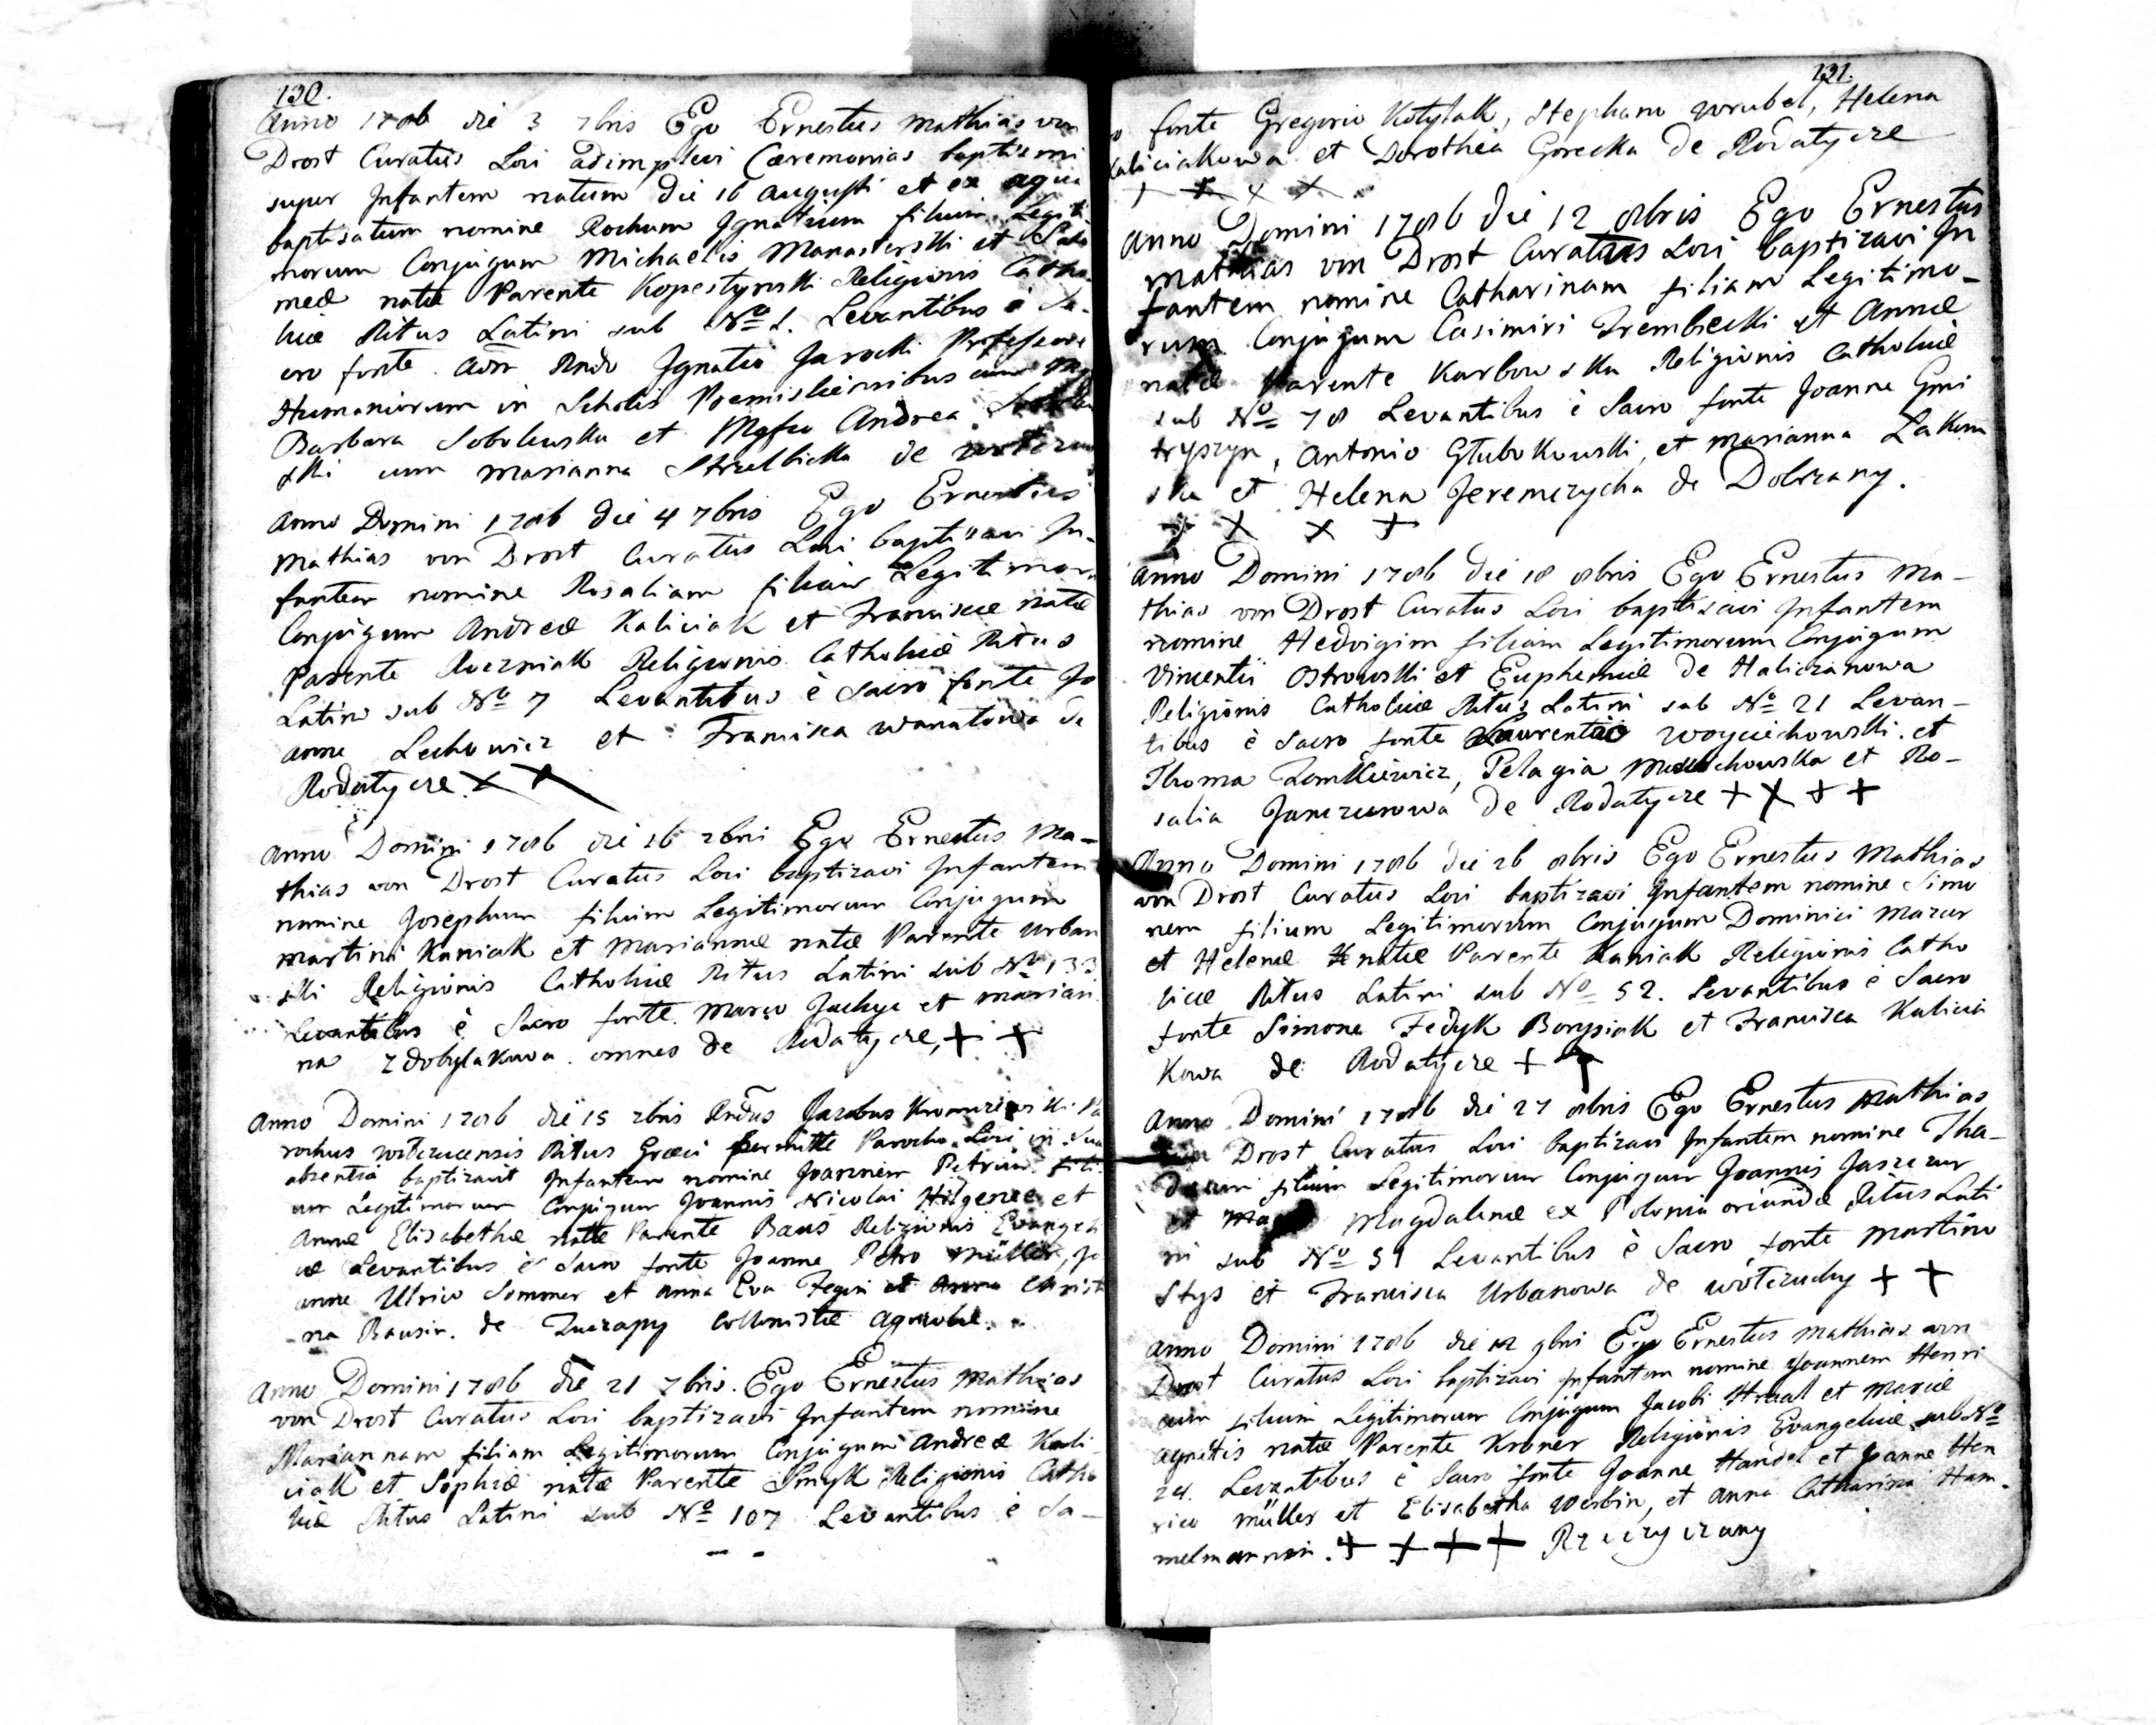 130.
Anno 1786 die 3 7bris Ego Ernestus Mathias von
Drost Curatus Loci adimplevi Cæremonias baptismi
super Infantem natum die 16 Augusti et ex aqua
baptisatum nomine Rochum Ignatium filium Legiti-
morum Conjugum Michaelis Manasterski et Salo
meæ natæ Parente Kopestynski Religionis Catho-
licæ Ritus Latini sub No 1. Levantibus è Sa-
cro fonte Adm Rndo Ignatio Jarocki Professore
Humaniorum in Scholis Premisliensibus cum
Barbara Sobolewska et Mgfco Andrea
ski cum Marianna Strzelbicka de
Anno Domini 1786 die 4 7bris Ego Ernestus
Mathias von Drost Curatus Loci baptisavi In-
fantem nomine Rosaliam filiam Legitimor
Conjugum Andreæ Kaliciak et Franciscæ natæ
Parente Religionis Catholicæ Ritus
Latini sub No 7 Levantibus è Sacro fonte Jo
anne Lechowicz et Francisca Wanatowa de
Rodatycze X X
Anno Domini 1786 die 16 7bri Ego Ernestus Ma-
thias von Drost Curatus Loci baptizavi Infantem
nomine Josephum filium Legitimorum Conjugum
Martini Kaniak et Mariannæ natæ Parente Urban
ski Religionis Catholicæ Ritus Latini sub No 133
Levantibus è Sacro fonte Marco et Marian
na Zdobylakowa omnes de Rodatycze, + +
Anno Domini 1786 die 15 7bris Rndus Jacobus Pa
rochus Ritus Græci Parocho Loci in sua
absentia baptizavit Infantem nomine Joannem Petrum fili
um Legitimorum Conjugum Joannis Nicolai Hilgeræ et
Annæ Elisabethæ natæ Parente Baus Religionis Evangeli
cæ Levantibus è Sacro fonte Joanne Petro Müller, Jo
anne Ulrico Sommer et Anna Eva Fegin et Anna Christi
na Bausin. de Zuczapy Collonistæ Agricolæ.
Anno Domini 1786 die 21 7bris. Ego Ernestus Mathias
von Drost Curatus Loci baptizavi Infantem nomine
Mariannam filiam Legitimorum Conjugum Andreæ Kali-
ciak et Sophiæ natæ Parente Smyk Religionis Catho
licæ Ritus Latini sub No 107 Levantibus è Sa-
131.
o fonte Gregorio Kotylak, Stephano Wrubel, Helena
Kaliciakowa et Dorothea Gorecka de Rodatycze
+ + + +
Anno Domini 1786 die 12 8bris Ego Ernestus
Mathias von Drost Curatus Loci baptizavi In
fantem nomine Catharinam filiam Legitimo-
rum Conjugum Casimiri Trembecki et Annæ
natæ Parente Karbowska Religionis Catholicæ
sub No 78 Levantibus è Sacro fonte Joanne Gmi
tryszyn, Antonio Głubokowski, et Marianna Łakom
ska et Helena Jeremczycha de Dobrzany.
+ X X +
Anno Domini 1786 die 18 8bris Ego Ernestus Ma-
thias von Drost Curatus Loci baptizavi Infantem
nomine Hedvigim filiam Legitimorum Conjugum
Vincentii Ostrowski et Euphemiæ de Haliczanowa
Religionis Catholicæ Ritus Latini sub No 21 Levan-
tibus è Sacro fonte Laurentio Woyciechowski et
Thoma Zomkiewicz, Pelagia et Ro-
salia Janczurowa de Rodatycze + X + +
Anno Domini 1786 die 26 8bris Ego Ernestus Mathias
von Drost Curatus Loci baptizavi Infantem nomine Simo
nem filium Legitimorum Conjugum Dominici Mazur
et Helenæ natæ Parente Kaniak Religionis Catho
licæ Ritus Latini sub No 52. Levantibus è Sacro
fonte Simone Fedyk Borysiak et Francisca Kalicia
kowa de Rodatycze + +
Anno Domini 1786 die 27 8bris Ego Ernestus Mathias
von Drost Curatus Loci baptizavi Infantem nomine Tha-
dæum filium Legitimorum Conjugum Joannis Jaszczur
et Magdalenæ ex Polonia oriundæ Ritus Lati
ni sub No 51 Levantibus è Sacro fonte Martino
Stys et Francisca Urbanowa de Wołczuchy + +
Anno Domini 1786 die 12 9bri Ego Ernestus Mathias von
Drost Curatus Loci baptizavi Infantem nomine Joannem Henri
cum filium Legitimorum Conjugum Jacobi et Mariæ
Agnetis natæ Parente Kroner Religionis Evangelicæ sub No
24. Levantibus è Sacro fonte Joanne Handel et Joanne Hen
rico Müller et Elisabetha Werbin, et Anna Catharina Ham-
melmannin. + + + + Rzeczyczany